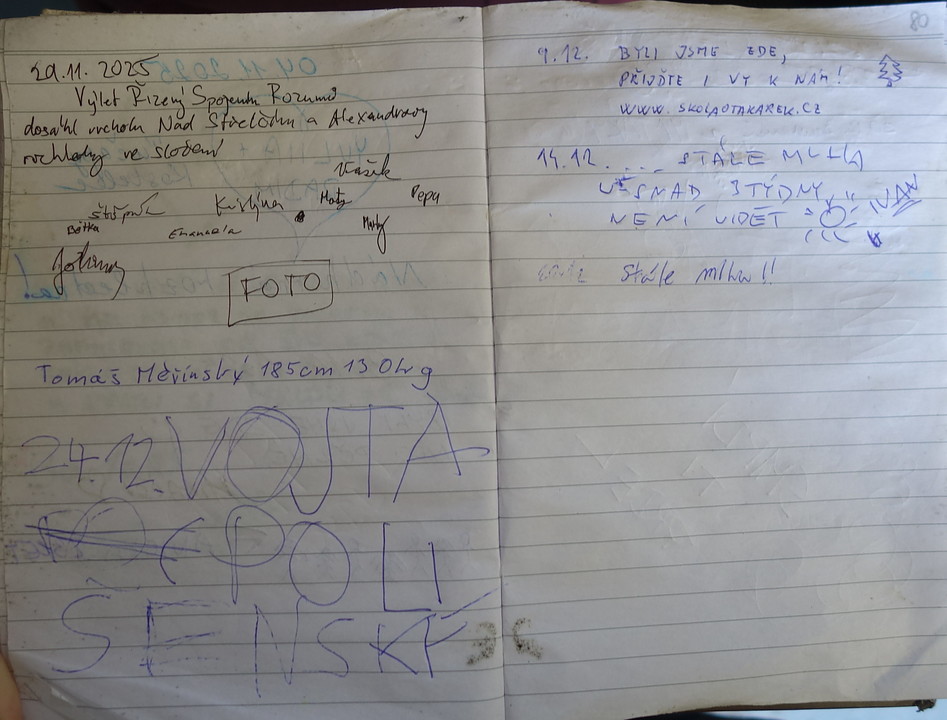 29.11. 2025
Výlet Řízený Spojením Rozumů
dosáhl vrcholu Nad Střelödou a Alexandrovy
rozhledny ve složení
Vašík
Štěpán Kristýna Maty Pepa
Bětka Emanuela Matěj
FOTO
Tomáš Měřínský 185cm 130kg
24.12. VOJTA
POLI
ŠENSKÝ
80
9.12. BYLI JSME ZDE,
PŘIJĎTE I VY K NÁM!
WWW.SKOLAOTAKAREK.CZ
14.12. ... STÁLE MLHA
UŽ SNAD 3 TÝDNY
NENÍ VIDĚT IVAN
Stále mlha!!